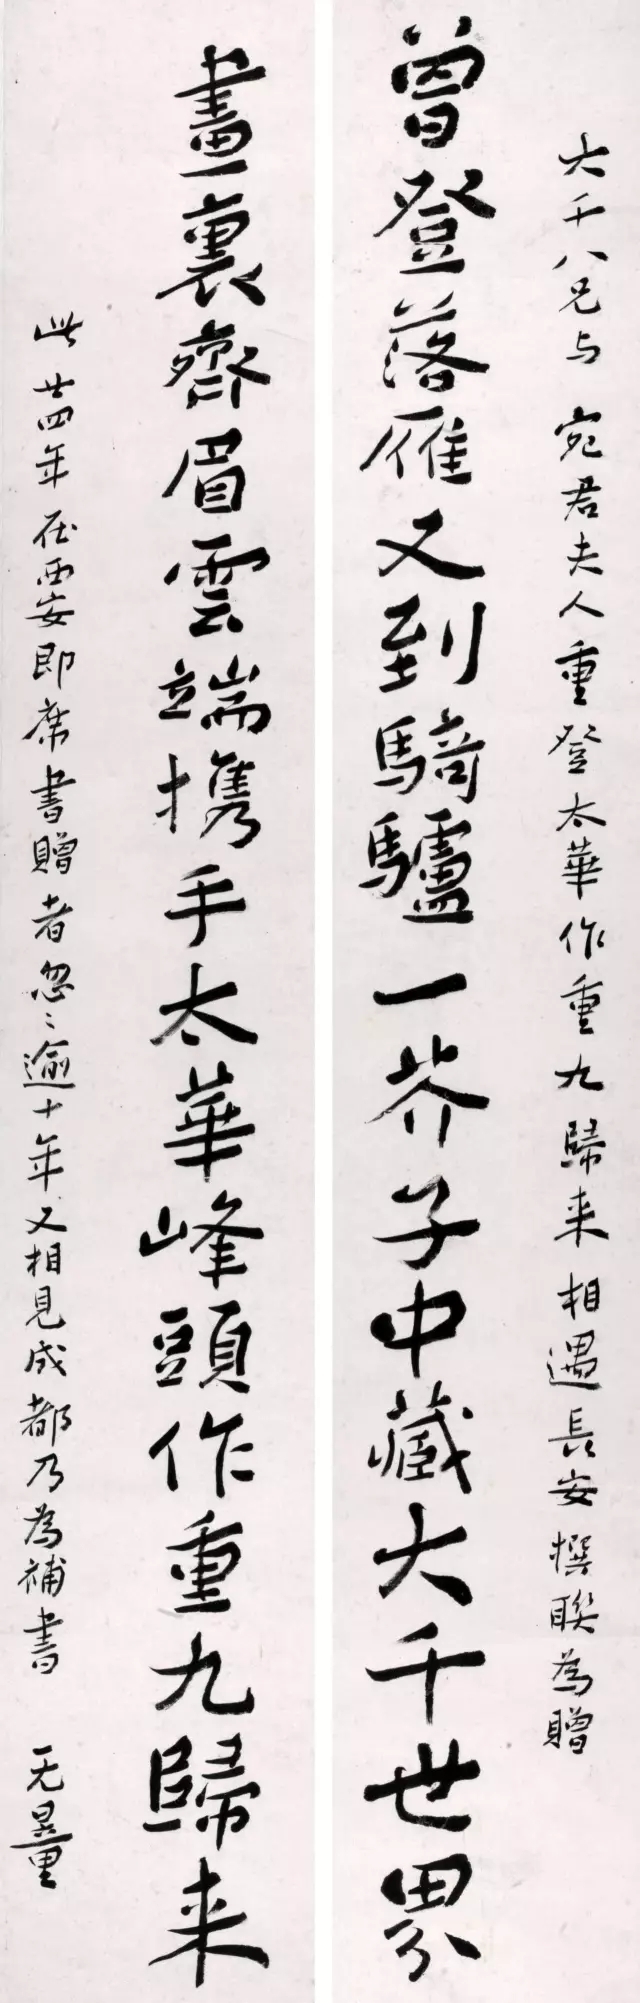 大千八兄与宛君夫人重登太華作重九歸来相遇長安撰聯為贈
曾登落雁又到騎驢一芥子中藏大千世界
畫裏齊眉雲端携手太華峰頭作重九歸来
此廿四年在西安即席書贈者忽〻逾十年又相見成都乃為補書 无量